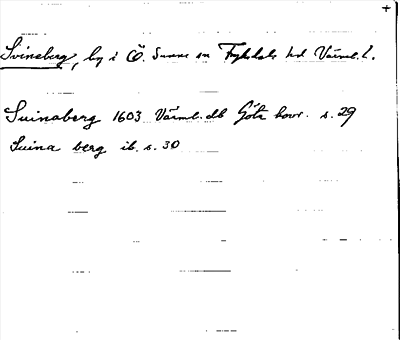 Svineberg, by i Ö. Sunne sn Fryksdals hd Värml. l.
Suinaberg 1603 Värml. db Göta hovr. s. 29
Suina berg ib. s. 30